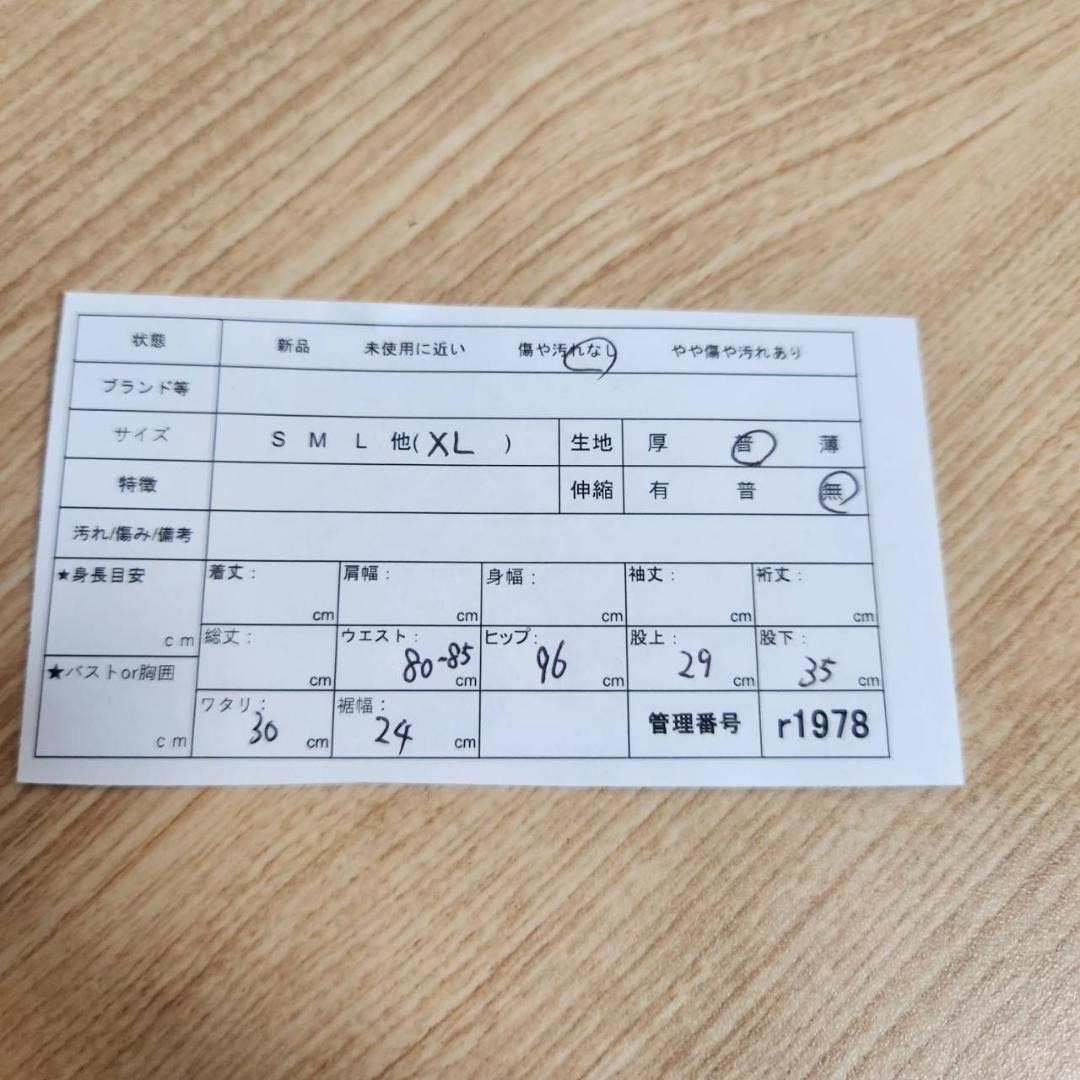 状態 新品 未使用に近い 傷や汚れなし やや傷や汚れあり
ブランド等
サイズ S M L 他( XL ) 生地 厚 普 薄
特徴 伸縮 有 普 無
汚れ/傷み/備考
★身長目安 cm 着丈: cm 肩幅: cm 身幅: cm 袖丈: cm 裄丈: cm
総丈: cm ウエスト: 80-85 cm ヒップ: 96 cm 股上: 29 cm 股下: 35 cm
★バストor胸囲 cm ワタリ: 30 cm 裾幅: 24 cm 管理番号 r1978